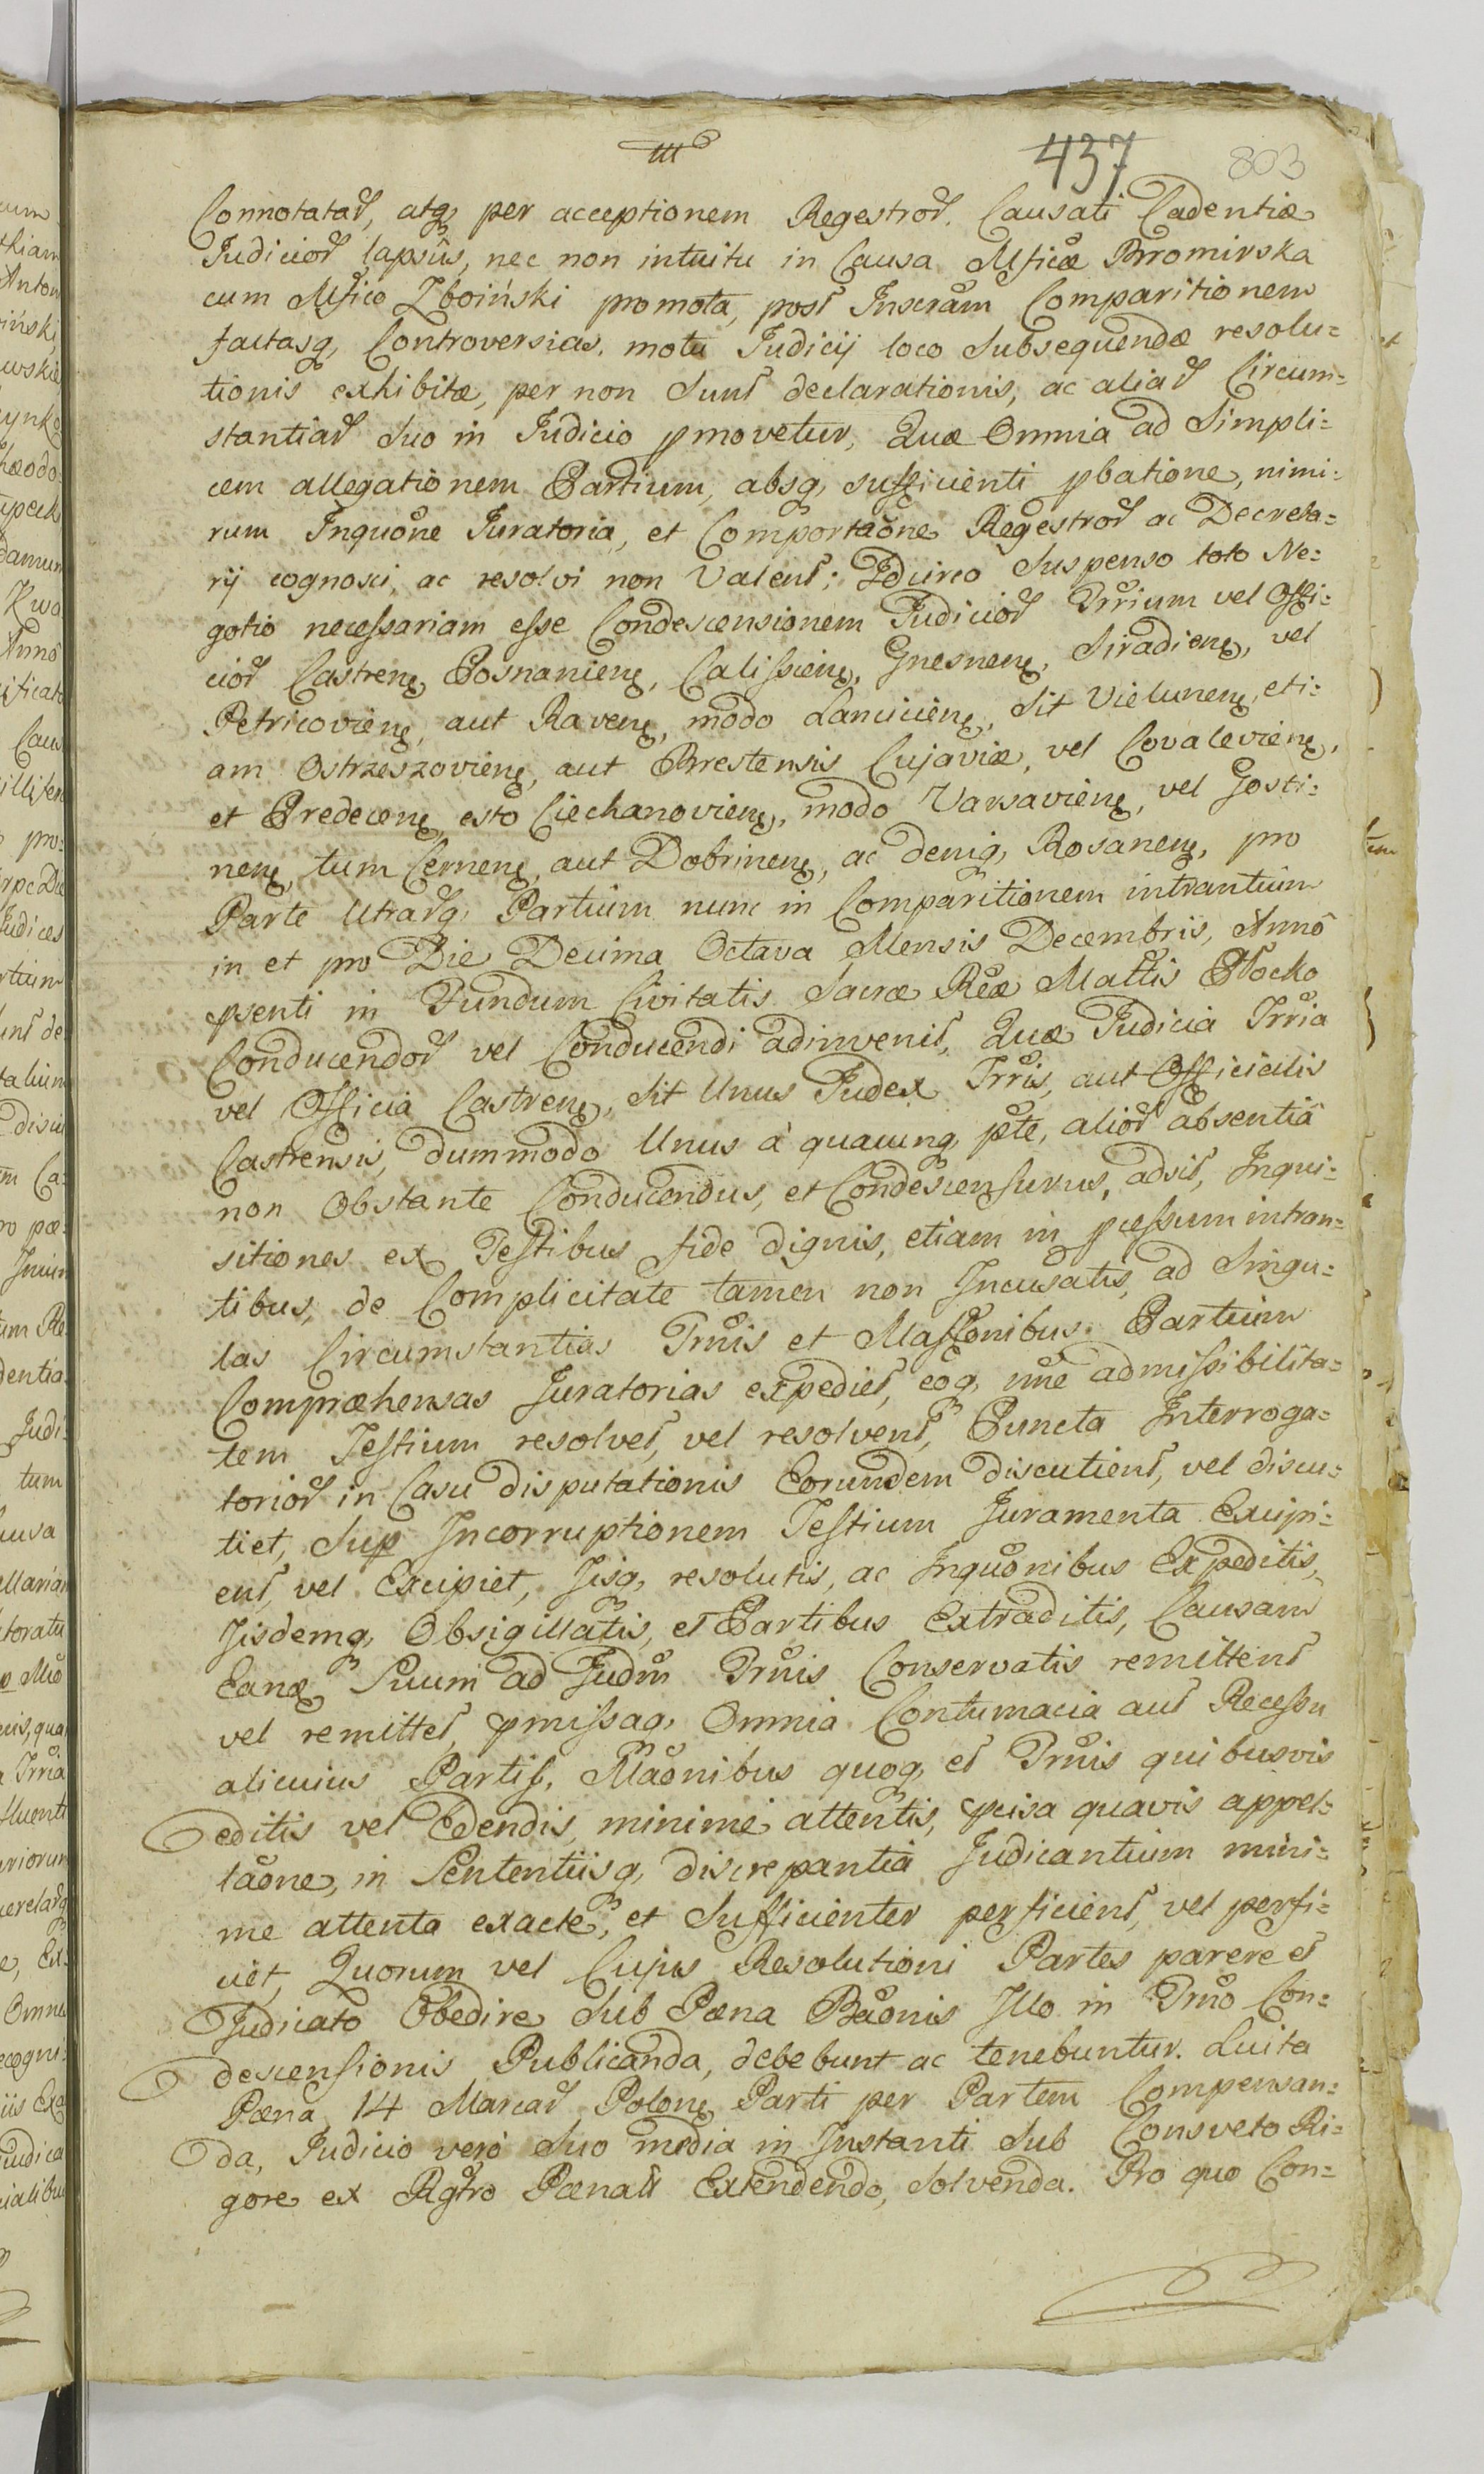 437 803
Connotatar, atq, per acceptionem Regestror. Causati Cadentiæ
Judicior lapsûs, nec non intuitu in Causa Mficæ Bromirska
cum Mfico Zboiński promota, post Inscram Comparitionem
factasq, Controversias, motu Judicij loco Subsequendæ resolu=
tionis exhibitæ, per non sunt declarationis, ac aliar Circum=
stantiar Suo in Judicio pmovetur, Quæ Omnia ad Simpli=
cem allegationem Partium, absq, sufficienti pbatione, nimi=
rum Inquõne Juratoria, et Comportaõne Regestror ac Decreta=
rij cognosci, ac resolvi non Valent; Idcirco Suspenso toto Ne=
gotio necessariam esse Condescensionem Judicior Trrium vel Offi=
cior Castren, Posnanien, Calissien, Gnesnen, Siradien, vel
Petricovien, aut Raven, modo Lancicien, Sit Vielunen, eti=
am Ostrzeszovien, aut Brestensis Cujaviæ, vel Covalevien,
et Predecen, esto Ciechanovien, modo Varsavien, vel Gosti=
nen, tum Cernen, aut Dobrinen, ac deniq, Rosanen, pro
Parte Utrarq, Partium nunc in Comparitionem intrantium
in et pro Die Decima Octava Mensis Decembris, Annô
psenti in Fundum Civitatis Sacræ Reæ Mattis Płocko
Conducendor vel Conducendi adinvenit, Quæ Judicia Trria
vel Officia Castren, Sit Unus Judex Trris, aut Officialis
Castrensis, dummodo Unus à quacunq, pte, alior absentiâ
non Obstante Conducendus, et Condescensurus, adsit, Inqui=
sitiones ex Testibus fide dignis, etiam in pcessum intran=
tibus, de Complicitate tamen non Incusatis, ad Singu=
las Circumstantias Trmis et Massonibus Partium
Compræhensas Juratorias expediet, eoq, nne admissibilita=
tem Testium resolvet, vel resolvent, Puncta Interroga=
torior in Casu disputationis Eorundem discutient, vel discu=
tiet, Sup Incorruptionem Testium Juramenta Excipi=
ent, vel Excipiet, Jisq, resolutis, ac Inquõnibus Expeditis,
Jisdemq, Obsigillatis, et Partibus Extraditis, Causam
Eanq Suum ad Judm Trmis Conservatis remittent
vel remittet, pmissaq, Omnia Contumacia aut Recessu
alicuius Partis, Maõnibus quoq, et Trmis quibusvis
editis vel Edendis, minime attentis, pcisa quavis appel=
laõne, in Sententiisq, discrepantiâ Judicantium mini=
me attenta exacte, et Sufficienter perficient, vel perfi=
ciet, Quorum vel Cujus Resolutioni Partes parere et
Judicato Obedire Sub Pæna Baõnis Illo in Trmo Con=
descensionis Publicanda, debebunt ac tenebuntur. Luita
Pæna 14 Marcar Polon, Parti per Partem Compensan=
da, Judicio verò Suo media in Instanti Sub Consveto Ri=
gore ex Rgtro Pænali Extendendo, Solvenda. Pro quo Con=